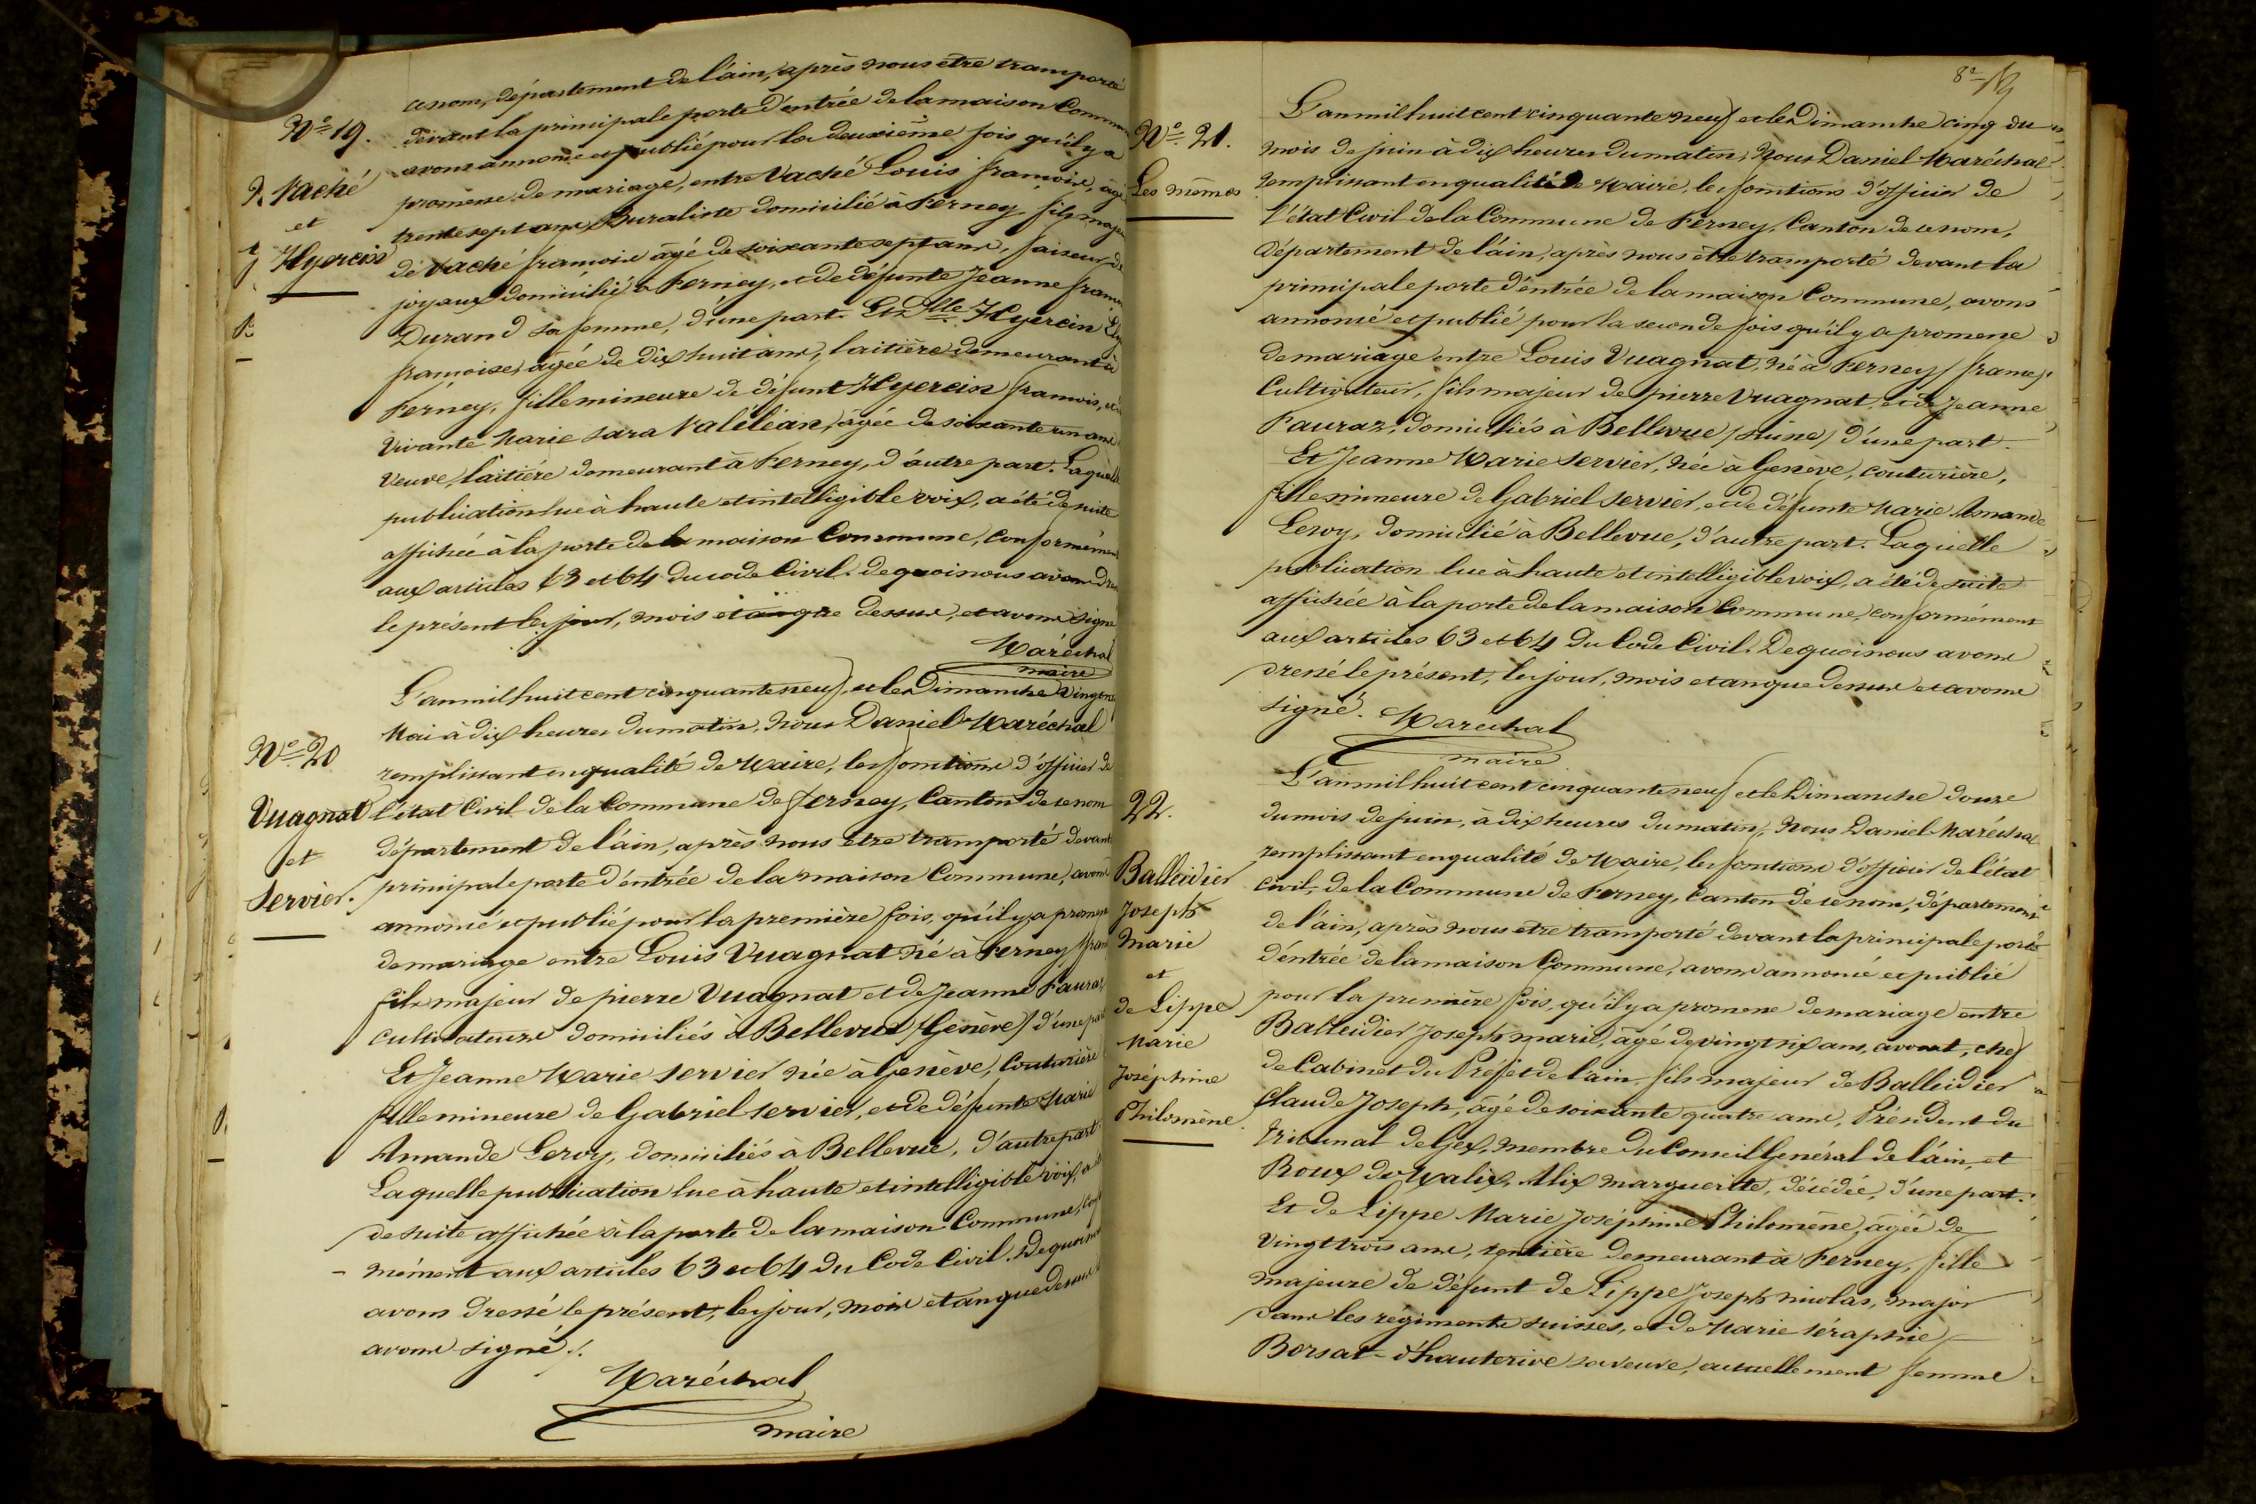 cenom, département de l'ain, après nous être transporté
Nº 19.
devant la principale porte d'entrée de la maison Commu
avons annoncé et publié pour la deuxième fois qu'il y a
Vaché
et
Hyercin
promesse de mariage, entre Vaché Louis françois, âgé
trente sept ans, Buraliste domicilié à Ferney, fils maje
de Vaché françois âgé de soixante sept ans, faiseur de
joyaux domicilié à Ferney, et de défunte Jeanne fran
Durand sa femme, d'une part. Et Dlle Hyercin
françoise, âgée de dix huit ans, laitière demeurant à
Ferney, fille mineure de défunt Hyercin françois, et
vivante Marie Sara Valéléan, âgée de soixante un ans
veuve, laitière demeurant à Ferney, d'autre part. Laquelle
publication lue à haute et intelligible voix, a été de suite
affichée à la porte de la maison Commune, conformémen
aux articles 63 et 64 du code Civil. de quoi nous avons dre
le présent les jour, mois et an que dessus, et avons signé
Maréchal
maire
Nº 20
Vuagnat
et
Servier.
L'an mil huit cent cinquante neuf, et le Dimanche vingt
Mai à dix heures du matin, Nous Daniel Maréchal
remplissant en qualité de Maire, les fonctions d'officier de
l'état Civil de la Commune de Ferney, Canton de ce nom
département de l'ain, après nous être transporté devant
principale porte d'entrée de la maison Commune, avons
annoncé et publié pour la première fois, qu'il y a promesse
de mariage entre Louis Vuagnat né à Ferney
fils majeur de pierre Vuagnat et de Jeanne Fauraz,
cultivateurs domiciliés à Bellevue (Genève) d'une part
Et Jeanne Marie Servier née à Genève, Couturière
fille mineure de Gabriel Servier, et de défunte Marie
Amande Leroy, domiciliés à Bellevue, d'autre part.
Laquelle publication lue à haute et intelligible voix, a
de suite affichée à la porte de la maison Commune,
mément aux articles 63 et 64 du Code Civil. De quoi
avons dressé le présent, les jour, mois et an que dessus
avons signé /.
Maréchal
maire
8e 19
Nº 21.
Les mêmes
L'an mil huit cent cinquante neuf et le Dimanche cinq du
mois de juin à dix heures du matin, Nous Daniel Maréchal
remplissant en qualité de Maire, les fonctions d'officier de
l'état Civil de la Commune de Ferney, Canton de ce nom,
département de l'ain, après nous être transporté devant la
principale porte d'entrée de la maison Commune, avons
annoncé et publié pour la seconde fois qu'il y a promesse
de mariage entre Louis Vuagnat, né à Ferney
Cultivateur, fils majeur de pierre Vuagnat, et de Jeanne
Fauraz, domiciliés à Bellevue (suisse) d'une part.
Et Jeanne Marie Servier, née à Genève, couturière,
fille mineure de Gabriel Servier, et de défunte Marie Amande
Leroy, domicilié à Bellevue, d'autre part. Laquelle
publication lue à haute et intelligible voix, a été de suite
affichée à la porte de la maison Commune, conformément
aux articles 63 et 64 du Code Civil. De quoi nous avons
dressé le présent, les jour, mois et an que dessus et avons
signé.
Maréchal
maire
22.
Balleidier
Joseph
Marie
et
de Lippe
Marie
Joséphine
Philomène.
L'an mil huit cent cinquante neuf et le Dimanche douze
du mois de juin, à dix heures du matin, Nous Daniel Maréchal
remplissant en qualité de Maire, les fonctions d'officier de l'état
civil, de la Commune de Ferney, canton de ce nom, département
de l'ain, après nous être transporté devant la principale porte
d'entrée de la maison Commune, avons annoncé et publié
pour la première fois, qu'il y a promesse de mariage entre
Balleidier Joseph marie, âgé de vingt six ans, avocat, chef
de Cabinet du Préfet de l'ain, fils majeur de Balleidier
Claude Joseph, âgé de soixante quatre ans, Président du
tribunal de Gex, membre du Conseil Général de l'ain, et
Roux de Malix, Alix marguerite, décédée, d'une part.
Et de Lippe Marie Joséphine Philomène, âgée de
vingt trois ans, rentière demeurant à Ferney, fille
majeure de défunt de Lippe Joseph nicolas, major
dans les régiments suisses, et de Marie Séraphie
Borsat-d'hauterive sa veuve, actuellement femme